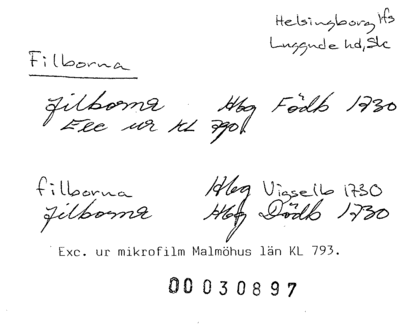 Helsingborg Hfs
Luggude hd, Sk
Filborna
Filborna Hbg Födb 1730
Exc ur KL 790.
Filborna Hbg Vigselb 1730
Filborna Hbg Dödb 1730
Exc. ur mikrofilm Malmöhus län KL 793.
00030897